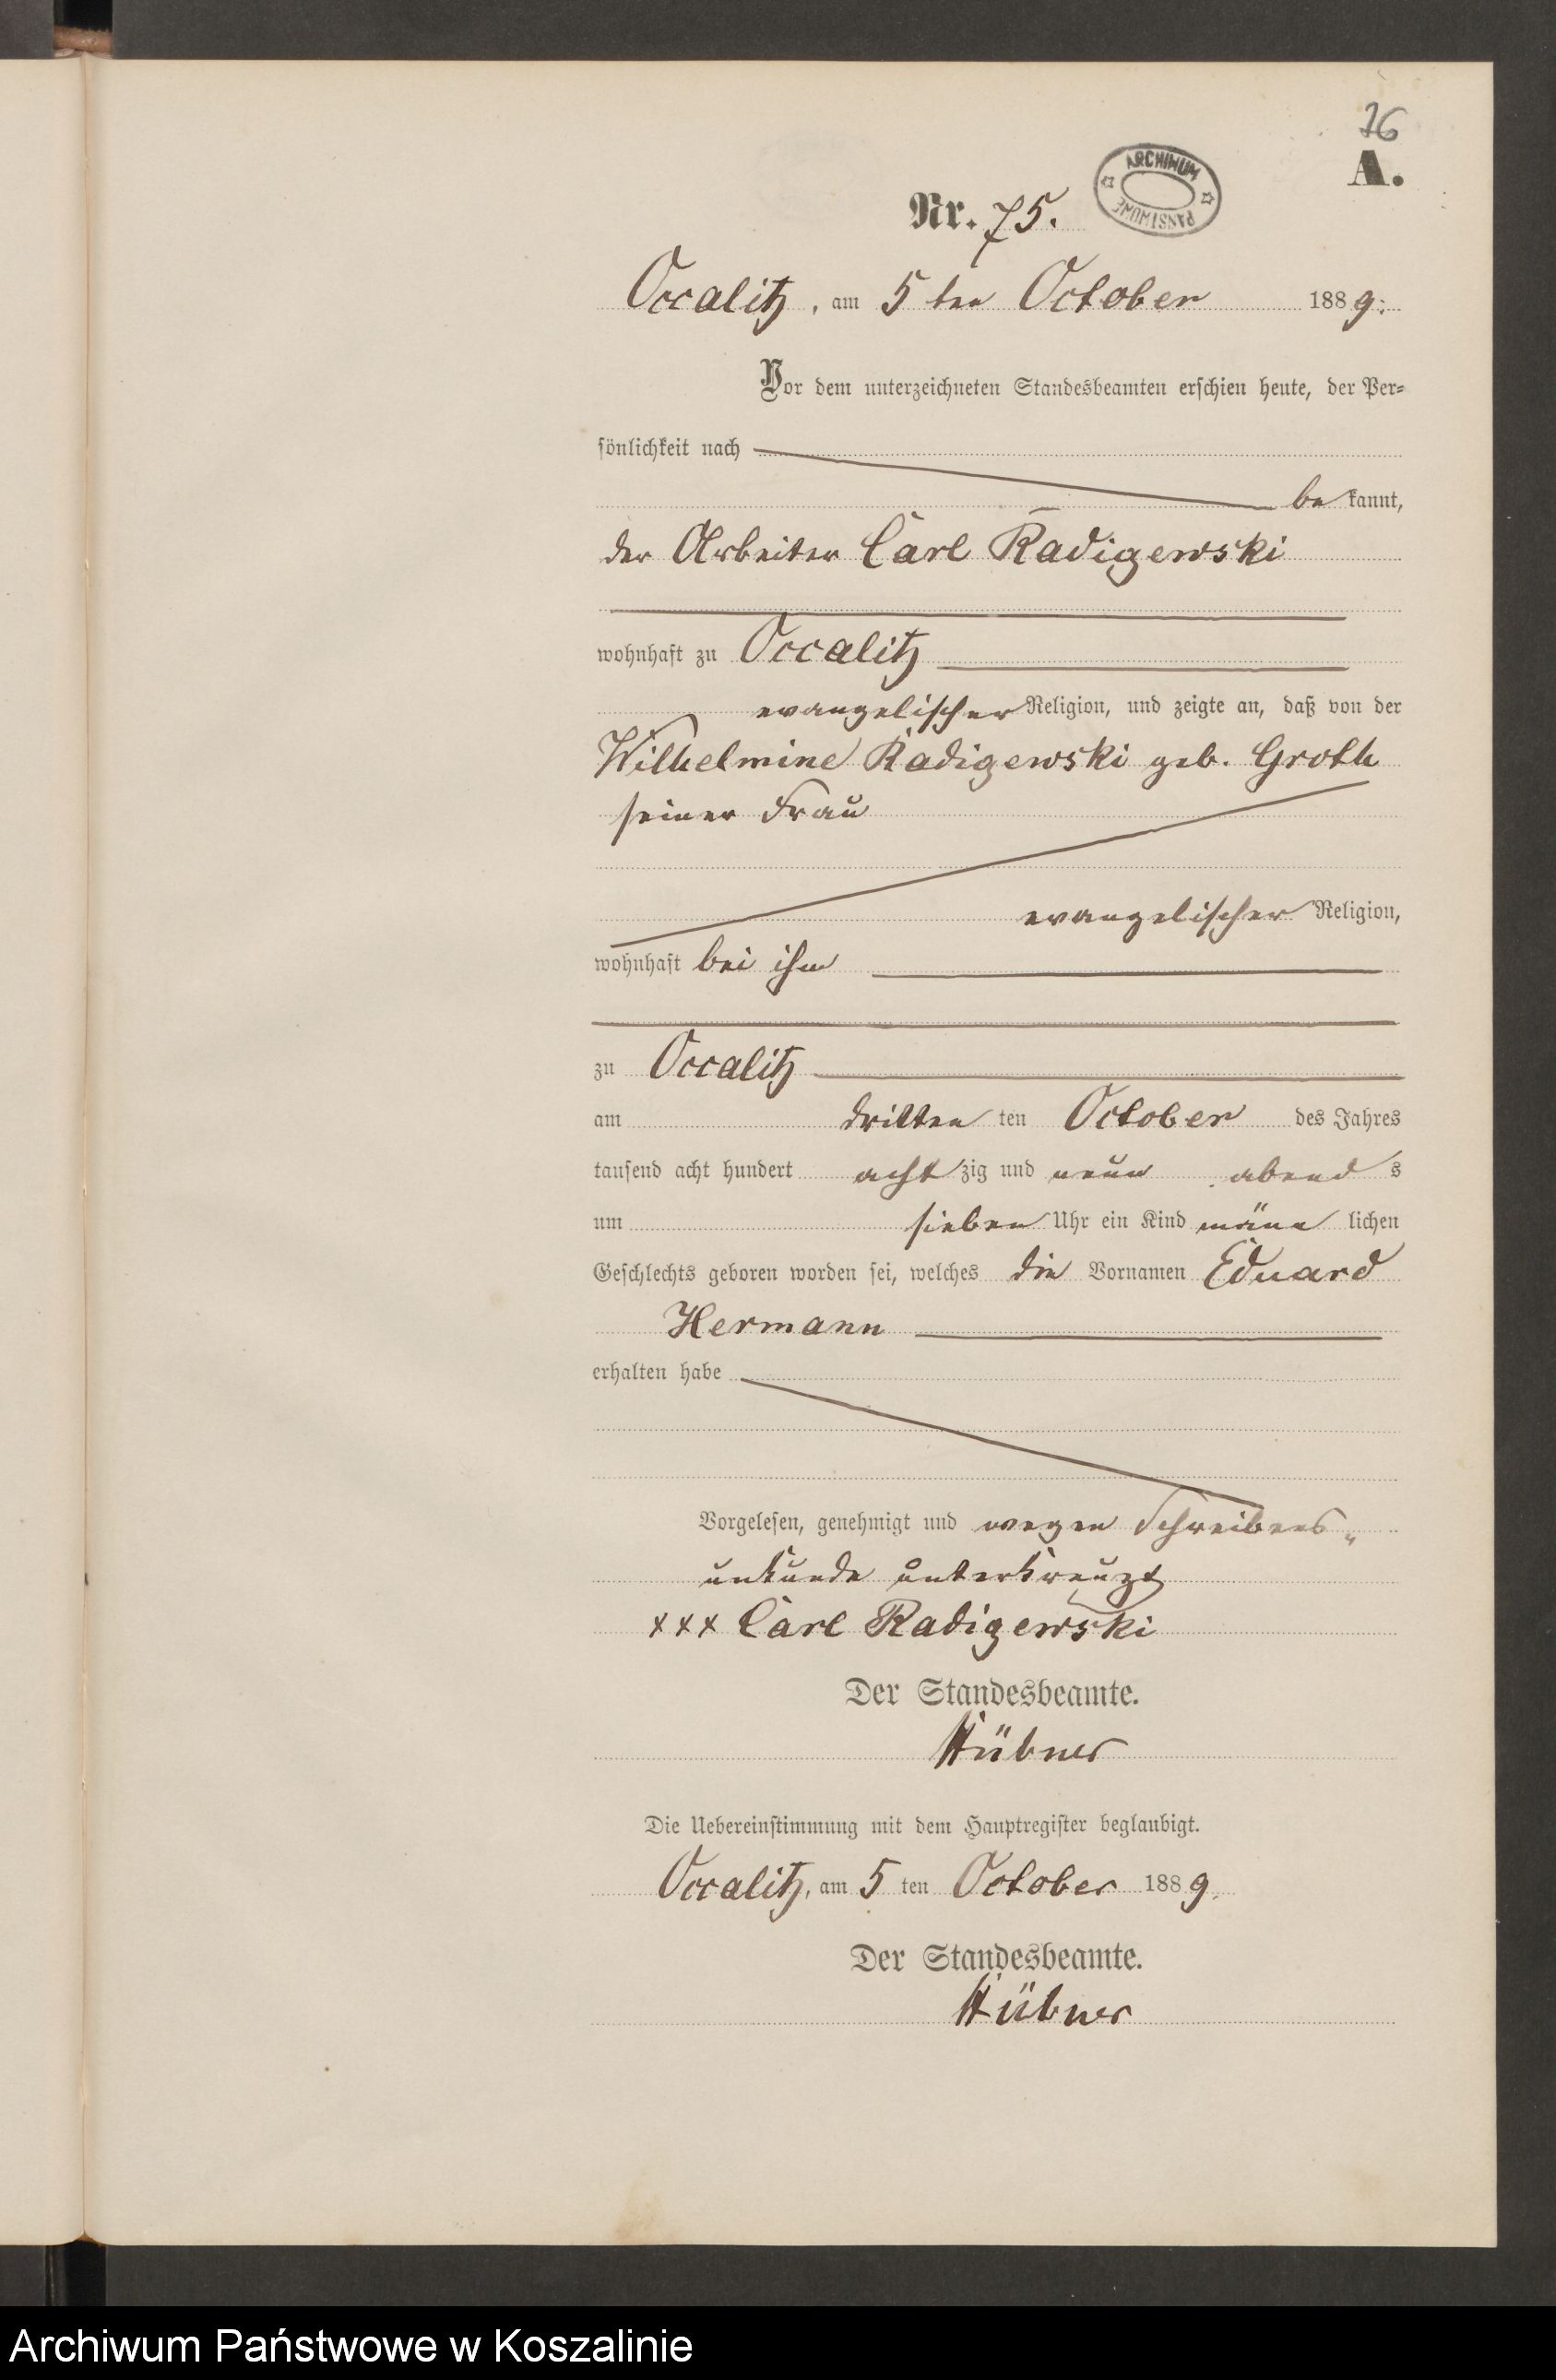 76
A.
ARCHIWUM PAŃSTWOWE
Nr. 75.
Occalitz, am 5 ten October 1889.
Vor dem unterzeichneten Standesbeamten erschien heute, der Per-
sönlichkeit nach
bekannt,
der Arbeiter Carl Radigewski
wohnhaft zu Occalitz
evangelischer Religion, und zeigte an, daß von der
Wilhelmine Radigewski geb. Groth
seiner Frau
evangelischer Religion,
wohnhaft bei ihm
zu Occalitz
am dritten ten October des Jahres
tausend acht hundert acht zig und neun abend s
um sieben Uhr ein Kind männ lichen
Geschlechts geboren worden sei, welches die Vornamen Eduard
Hermann
erhalten habe
Vorgelesen, genehmigt und wegen Schreibens-
unkunde unterkreuzt
xxx Carl Radigewski
Der Standesbeamte.
Hübner
Die Uebereinstimmung mit dem Hauptregister beglaubigt.
Occalitz, am 5 ten October 1889.
Der Standesbeamte.
Hübner
Archiwum Państwowe w Koszalinie